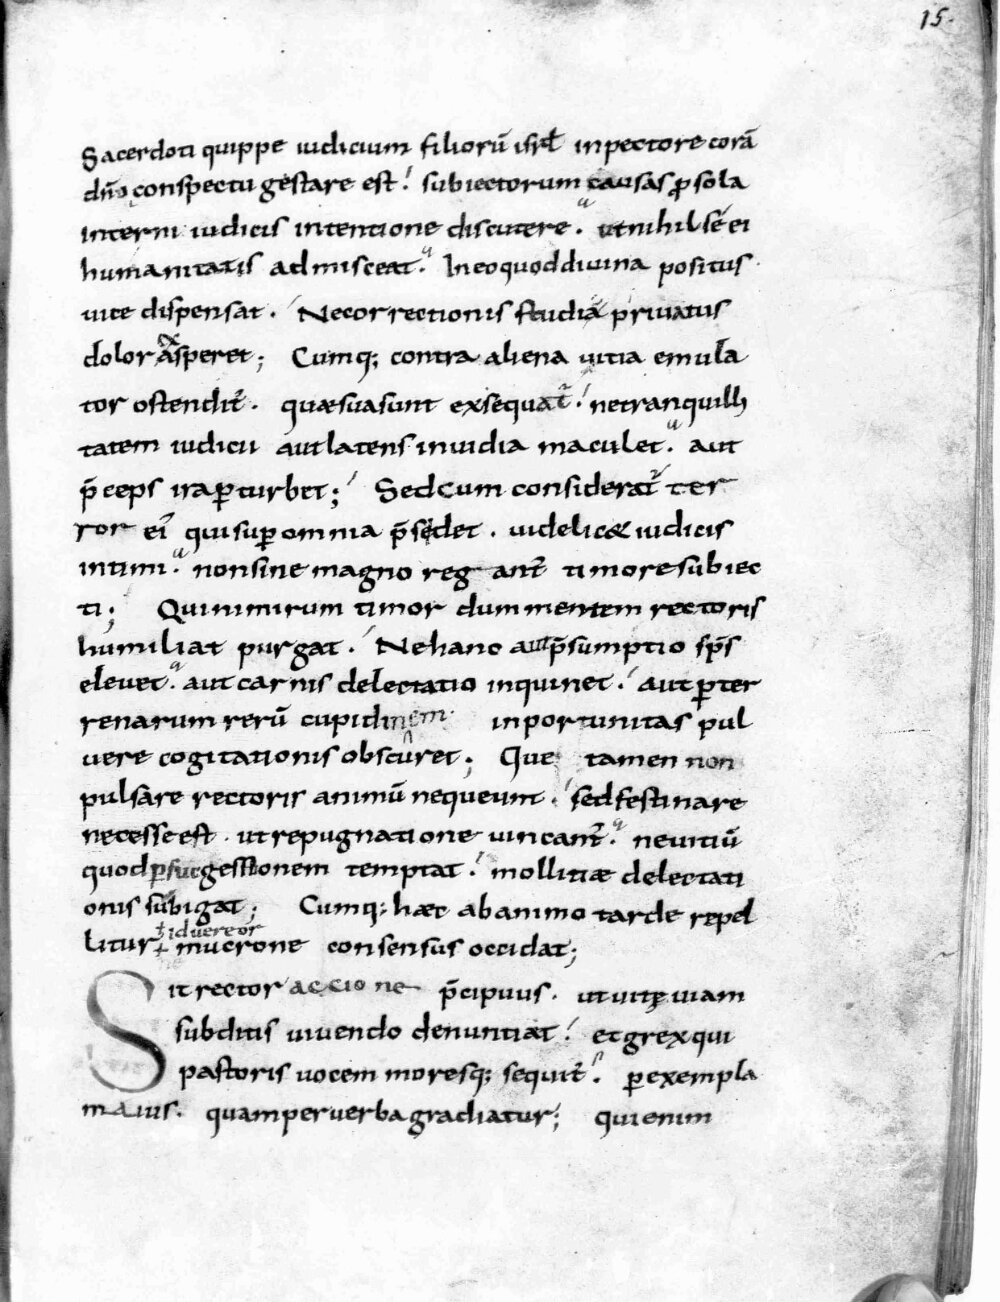 15.
Sacerdoti quippe iudicium filiorū isrl̄ inpectore corā
dn̄o conspectu gestare est. subiectorum causas ꝓ sola
interni iudicis intentione discutere. ut nihil sē ei
humanitatis admisceat. In eo quod diuina positus
uice dispensat. Ne correctionis studiā priuatus
dolor exasperet; Cumq; contra aliena uitia emula
tor ostendit̄. quae sua sunt exsequat̄. ne tranquilli
tatem iudicii aut latens inuidia maculet. aut
p̄ceps ira ꝑturbet; Sed cum considerat̄ ter
ror ei' qui suꝑ omnia p̄sedet. uidelic& iudicis
intimi. non sine magno reg ant̄ timore subiec
ti; Qui nimirum timor dum mentem rectoris
humiliat purgat. Ne hanc aut p̄sumptio sp̄s
eleuet. aut carnis delectatio inquinet. aut ꝑ ter
renarum rerū cupidinem inportunitas pul
uere cogitationis obscuret; Que tamen non
pulsare rectoris animū nequeunt. sed festinare
necesse est. ut repugnatione uincant̄. ne uitiū
quod ꝑ suggestionem temptat. mollitiae delectati
onis subigat; Cumq; haec ab animo tarde repel
litur
mucrone consensus occidat;
Sit rector accione p̄cipuus. ut uitę uiam
subditis uiuendo denuntiat. et grex qui
pastoris uocem moresq; sequit̄. ꝑ exempla
maius. quam per uerba gradiatur; qui enim